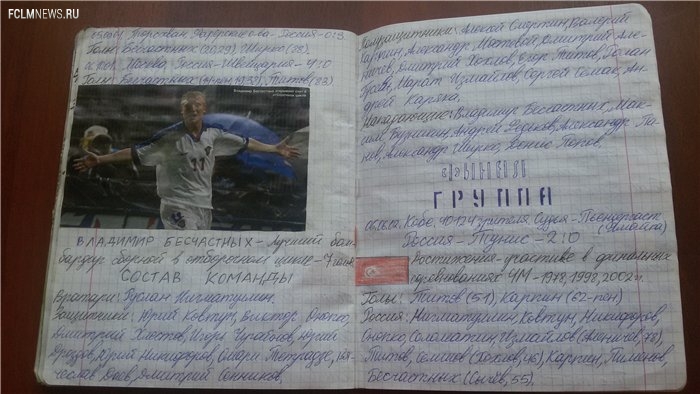 FCLMNEWS.RU
Торсхавн Фарерские о-ва - Россия - 0:3
Голы: Бесчастных Широко (78).
Москва Россия - Швейцария - 4:0
Голы: Бесчастных Титов (83)
Владимир Бесчастных открывает счет в
ВЛАДИМИР БЕСЧАСТНЫХ - Лучший бом-
бардир сборной в отборочном цикле - 7 голов.
СОСТАВ КОМАНДЫ
Вратари: Руслан Нигматуллин.
Защитники: Юрий Ковтун, Виктор Онопко,
Дмитрий Хлестов, Игорь Чугайнов, Юрий
Дроздов, Юрий Никифоров, Омари Тетрадзе, Вя-
чеслав Даев, Дмитрий Сенников,
Полузащитники: Алексей Смертин, Валерий
Карпин, Александр Мостовой, Дмитрий Але-
ничев, Дмитрий Хохлов, Егор Титов, Ролан
Гусев, Марат Измайлов, Сергей Семак, Ан-
дрей Каряка,
Нападающие: Владимир Бесчастных, Мак-
сим Бузникин, Андрей Федьков, Александр Па-
нов, Александр Широко, Денис Попов,
ФИНАЛ
ГРУППА
05.06.02. Кобе, зрителя Судья - Пендергаст
(Ямайка)
Россия - Тунис - 2:0
Достижения - участие в финальных
соревнованиях ЧМ - 1978, 1998, 2002 г.
Голы: Титов (51) Карпин (62-пен)
Россия: Нигматуллин, Ковтун, Никифоров,
Онопко, Соломатин, Измайлов (Аленичев, 78),
Титов, Семшов (Хохлов, 46), Карпин, Пименов,
Бесчастных (Сычёв, 55),